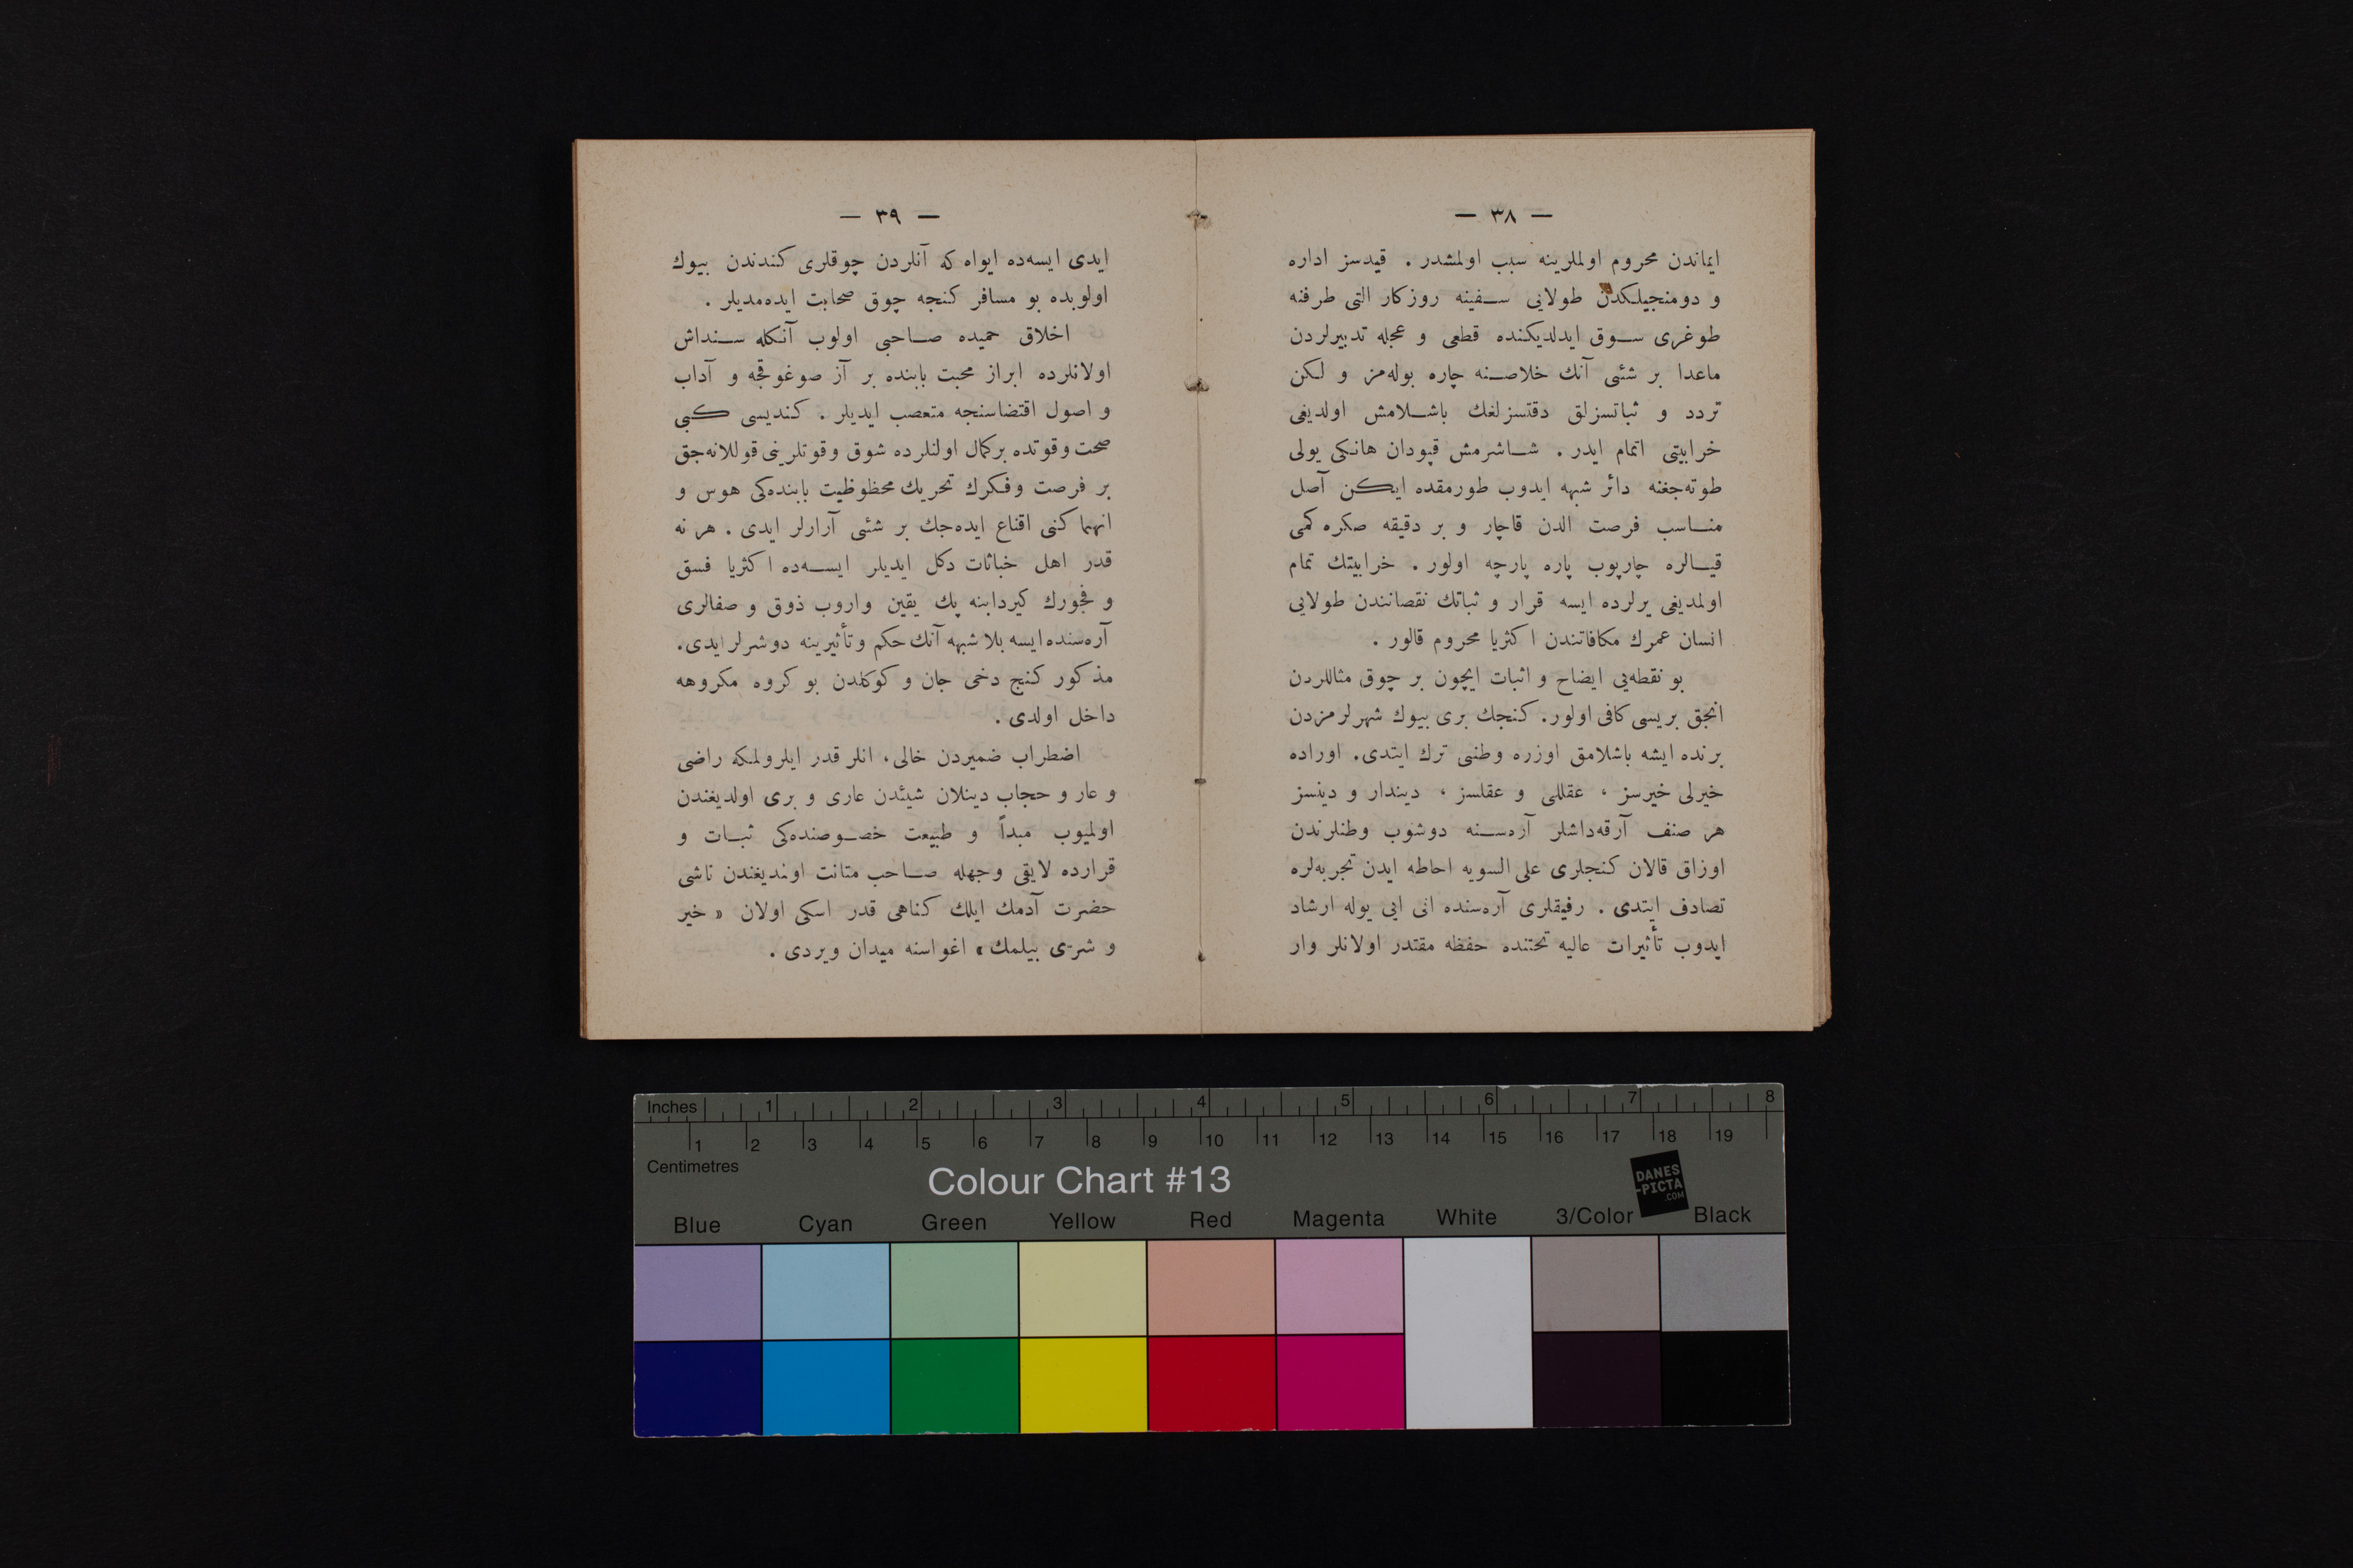 — ٣٨ —
ایماندن محروم اولملرینه سبب اولمشدر . قیدسز اداره
و دومنجیلکدن طولایی سفینه روزكار التی طرفنه
طوغری سوق ایدلدیكنده قطعی و عجله تدبیرلردن
ماعدا بر شئی آنك خلاصنه چاره بوله‌مز و لكن
تردد و ثباتسزلق دقتسزلغك باشلامش اولدیغی
خرابیتی اتمام ایدر . شاشرمش قپودان هانكی یولی
طوته‌جغنه دائر شبهه ایدوب طورمقده ایكن آصل
مناسب فرصت الدن قاچار و بر دقیقه صكره كمی
قیالره چارپوب پاره پارچه اولور . خرابیتك تمام
اولمدیغی یرلرده ایسه قرار و ثباتك نقصانندن طولایی
انسان عمرك مكافاتندن اكثریا محروم قالور .
بو نقطه‌یی ایضاح و اثبات ایچون بر چوق مثاللردن
انجق بریسی كافی اولور . كنجك بری بیوك شهرلرمزدن
برنده ایشه باشلامق اوزره وطنی ترك ایتدی . اوراده
خیرلی خیرسز ، عقللی و عقلسز ، دیندار و دینسز
هر صنف آرقه‌داشلر آره‌سنه دوشوب وطنلرندن
اوزاق قالان كنجلری علی السویه احاطه ایدن تجربه‌لره
تصادف ایتدی . رفیقلری آره‌سنده انی ایی یوله ارشاد
ایدوب تأثیرات عالیه تحتنده حفظه مقتدر اولانلر وار
— ٣٩ —
ایدی ایسه‌ده ایواه كه آنلردن چوقلری كندندن بیوك
اولوبده بو مسافر كنجه چوق صحابت ایده‌مدیلر .
اخلاق حمیده صاحبی اولوب آنكله سنداش
اولانلرده ابراز محبت بابنده بر آز صوغوقجه و آداب
و اصول اقتضاسنجه متعصب ایدیلر . كندیسی كبی
صحت وقوتده بركمال اولنلرده شوق وقوتلرینی قوللانه‌جق
بر فرصت وفكرك تحریك محظوظیت بابنده‌كی هوس و
انهماكنی اقناع ایده‌جك بر شئی آرارلر ایدی . هر نه
قدر اهل خباثات دكل ایدیلر ایسه‌ده اكثریا فسق
و فجورك كیردابنه پك یقین واروب ذوق و صفالری
آره‌سنده ایسه بلا شبهه آنك حكم وتأثیرینه دوشرلر ایدی .
مذكور كنج دخی جان و كوكلدن بو كروه مكروهه
داخل اولدی .
اضطراب ضمیردن خالی ، انلر قدر ایلرولمكه راضی
و عار و حجاب دینلان شیئدن عاری و بری اولدیغندن
اولمیوب مبدأ و طبیعت خصوصنده‌كی ثبات و
قرارده لایقی وجهله صاحب متانت اولمدیغندن ناشی
حضرت آدمك ایلك كناهی قدر اسكی اولان « خیر
و شرّی بیلمك » اغواسنه میدان ویردی .
Inches 1 2 3 4 5 6 7 8
1 2 3 4 5 6 7 8 9 10 11 12 13 14 15 16 17 18 19
Centimetres
Colour Chart #13
DANES
-PICTA
.COM
Blue Cyan Green Yellow Red Magenta White 3/Color Black